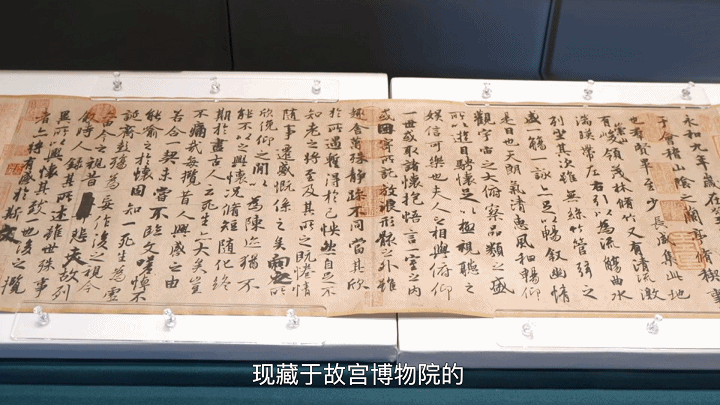 永和九年歲在
于會稽山陰之蘭亭脩稧事
也羣賢畢至少長咸集此地
有崇山峻領茂林脩竹又有清流激
湍暎帶左右引以為流觴曲水
列坐其次雖無絲竹管弦之
盛一觴一詠亦足以暢敘幽情
是日也天朗氣清惠風和暢仰
觀宇宙之大俯察品類之盛
所以遊目騁懷足以極視聽之
娛信可樂也夫人之相與俯仰
一世或取諸懷抱悟言一室之內
或因寄所託放浪形骸之外雖
趣舍萬殊靜躁不同當其欣
於所遇暫得於己怏然自足不
知老之將至及其所之既惓情
隨事遷感慨係之矣向之所
欣俛仰之閒以為陳迹猶不
能不以之興懷況脩短隨化終
期於盡古人云死生亦大矣豈
不痛哉每攬昔人興感之由
若合一契未嘗不臨文嗟悼不
能喻之於懷固知一死生為虛
誕齊彭殤為妄作後之視今
亦由今之視昔悲夫故列
敘時人錄其所述雖世殊事
異所以興懷其致一也後之攬
者亦將有感於斯文
现藏于故宫博物院的